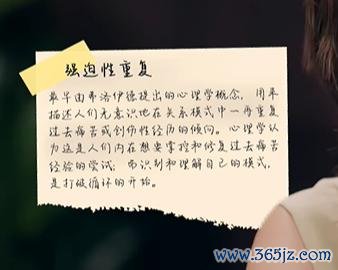 强迫性重复
最早由弗洛伊德提出的心理学概念，用来
描述人们无意识地在关系模式中一再重复
过去痛苦或创伤性经历的倾向。心理学认
为这是人们内在想要掌控和修复过去痛苦
经验的尝试；而识别和理解自己的模式，
是打破循环的开始。
www.365jz.com